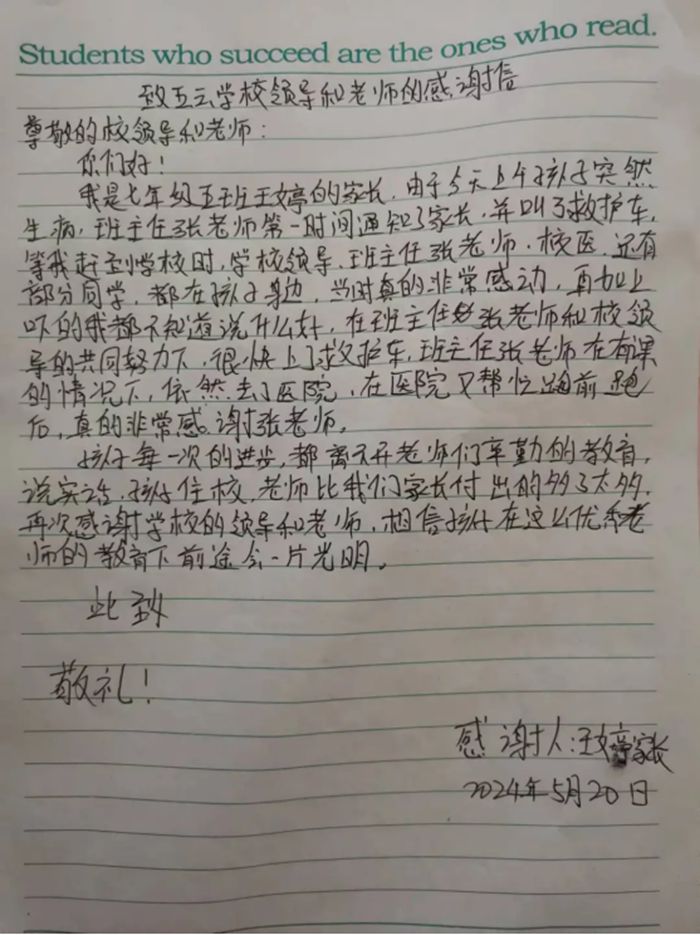 Students who succeed are the ones who read.
致五云学校领导和老师的感谢信
尊敬的校领导和老师：
你们好！
我是七年级五班王婷的家长，由于今天上午孩子突然
生病，班主任张老师第一时间通知了家长，并叫了救护车，
等我赶到学校时，学校领导、班主任张老师、校医、还有
部分同学，都在孩子身边，当时真的非常感动，再加上
吓的我都不知道说什么好，在班主任张老师和校领
导的共同努力下，很快上了救护车，班主任张老师在有课
的情况下，依然去了医院，在医院又帮忙跑前跑
后，真的非常感谢张老师。
孩子每一次的进步，都离不开老师们辛勤的教育，
说实话，孩子住校，老师比我们家长付出的多了太多，
再次感谢学校的领导和老师，相信孩子在这么优秀老
师的教育下前途会一片光明。
此致
敬礼！
感谢人：王婷家长
2024年5月20日